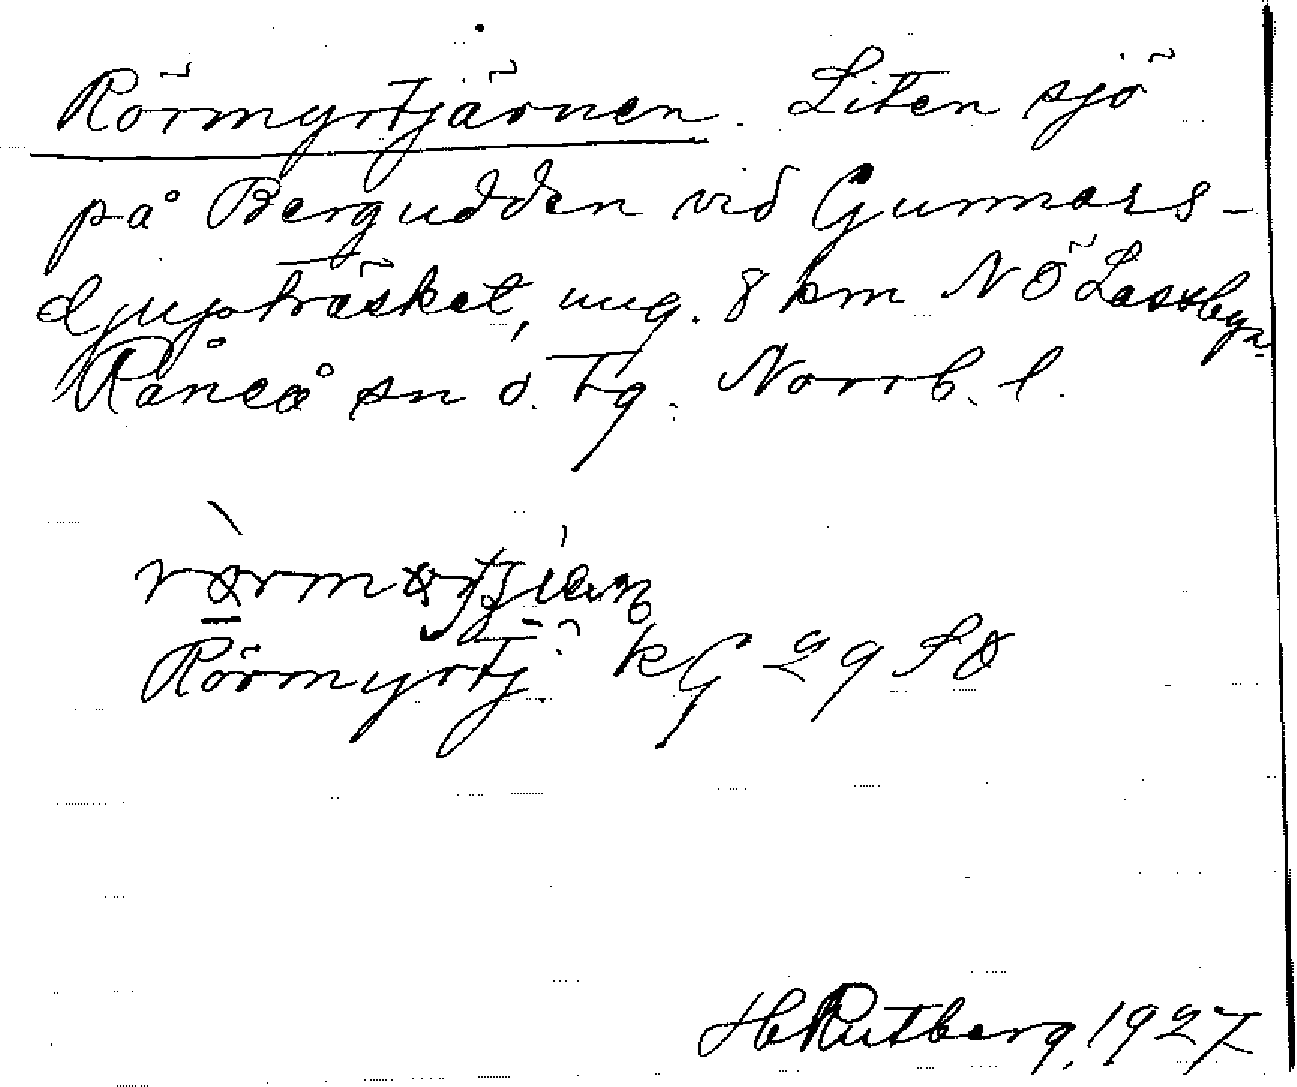 Rörmyrtjärnen. Liten sjö
på Bergudden vid Gunnars-
djupträsket, ung. 8 km NÖ Lassbyn
Råneå sn ö. Tg. Norrb. l.
Rörmyrtj kG 29 SO
H Rutberg, 1927